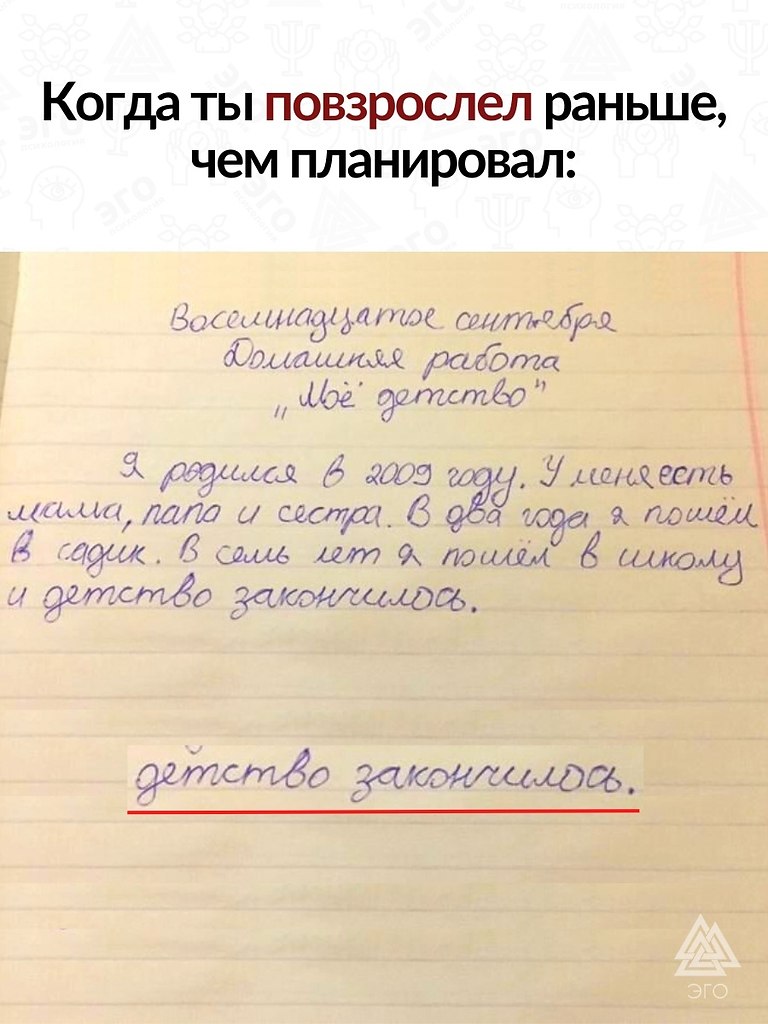 Когда ты повзрослел раньше,
чем планировал:
Восемнадцатое сентября
Домашняя работа
„Моё детство"
Я родился в 2009 году. У меня есть
мама, папа и сестра. В два года я пошёл
в садик. В семь лет я пошёл в школу
и детство закончилось.
детство закончилось.
ЭГО